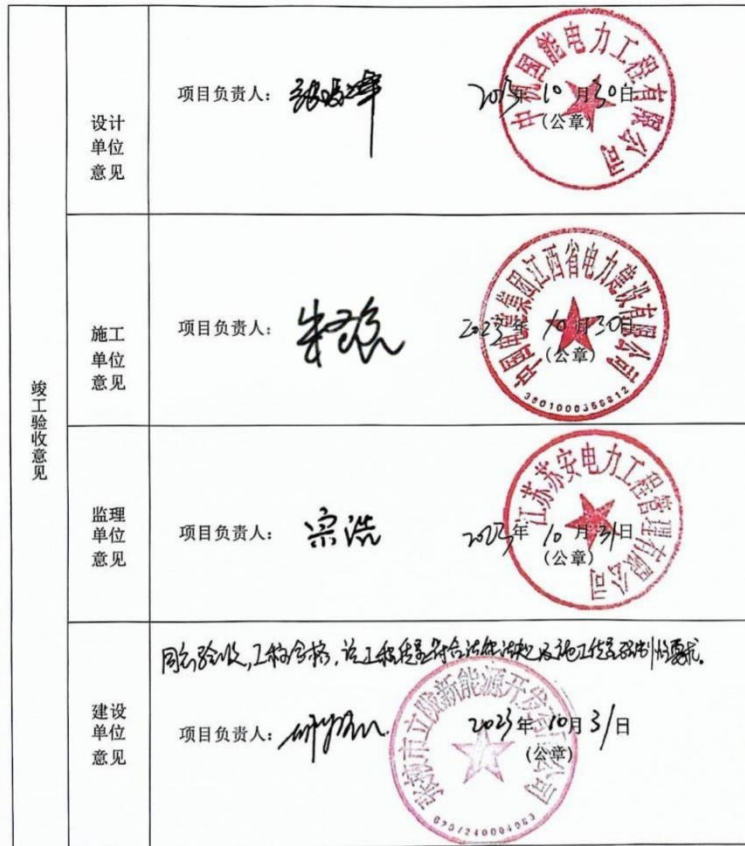 竣工验收意见
设计单位意见
项目负责人：
2023年10月30日
（公章）
中机国能电力工程有限公司
施工单位意见
项目负责人：
2023年10月30日
（公章）
中国电建集团江西省电力建设有限公司
监理单位意见
项目负责人：宗浩
2023年10月31日
（公章）
江苏苏安电力工程管理有限公司
建设单位意见
同意验收，工程合格，该工程质量符合法律法规及施工质量强制性要求。
项目负责人：
2023年10月31日
（公章）
张掖市立陇新能源开发有限公司